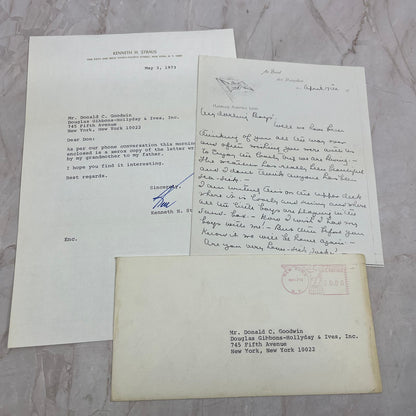 KENNETH H. STRAUS
May 3, 1973
Mr. Donald C. Goodwin
Douglas Gibbons-Hollyday & Ives, Inc.
745 Fifth Avenue
New York, New York 10022
Dear Don:
As per our phone conversation this morning
enclosed is a xerox copy of the letter
by my grandmother to my father.
I hope you find it interesting.
Best regards.
Sincerely,
Kenneth H. St
Enc.
An Bord
den
April
My darling Boys:
well we have been
thinking of you all the way now
and often wishing you were with us
to enjoy the lovely trip we are having -
The weather has really been beautiful
and I don't think anyone has been
sea-sick -
I am writing this on the upper deck
where it is lovely and sunny and where
all the little boys are playing in the
sand-box - How I wish I had my
boys with me! - But before you
know it we will be home again -
Are you very home-sick Jack?
NEW YORK
N.Y.
U.S. POSTAGE
Mr. Donald C. Goodwin
Douglas Gibbons-Hollyday & Ives, Inc.
745 Fifth Avenue
New York, New York 10022